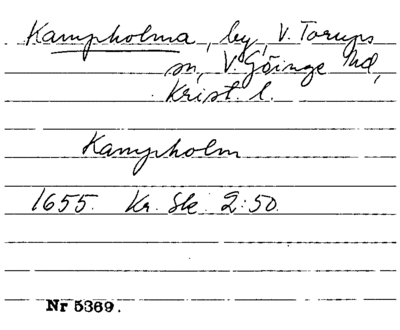 Kampholma, by, V. Torups
sn, V. Göinge hd,
Krist. l.
Kampholm
1655. Kr. Sk. 2:50.
Nr 5369.